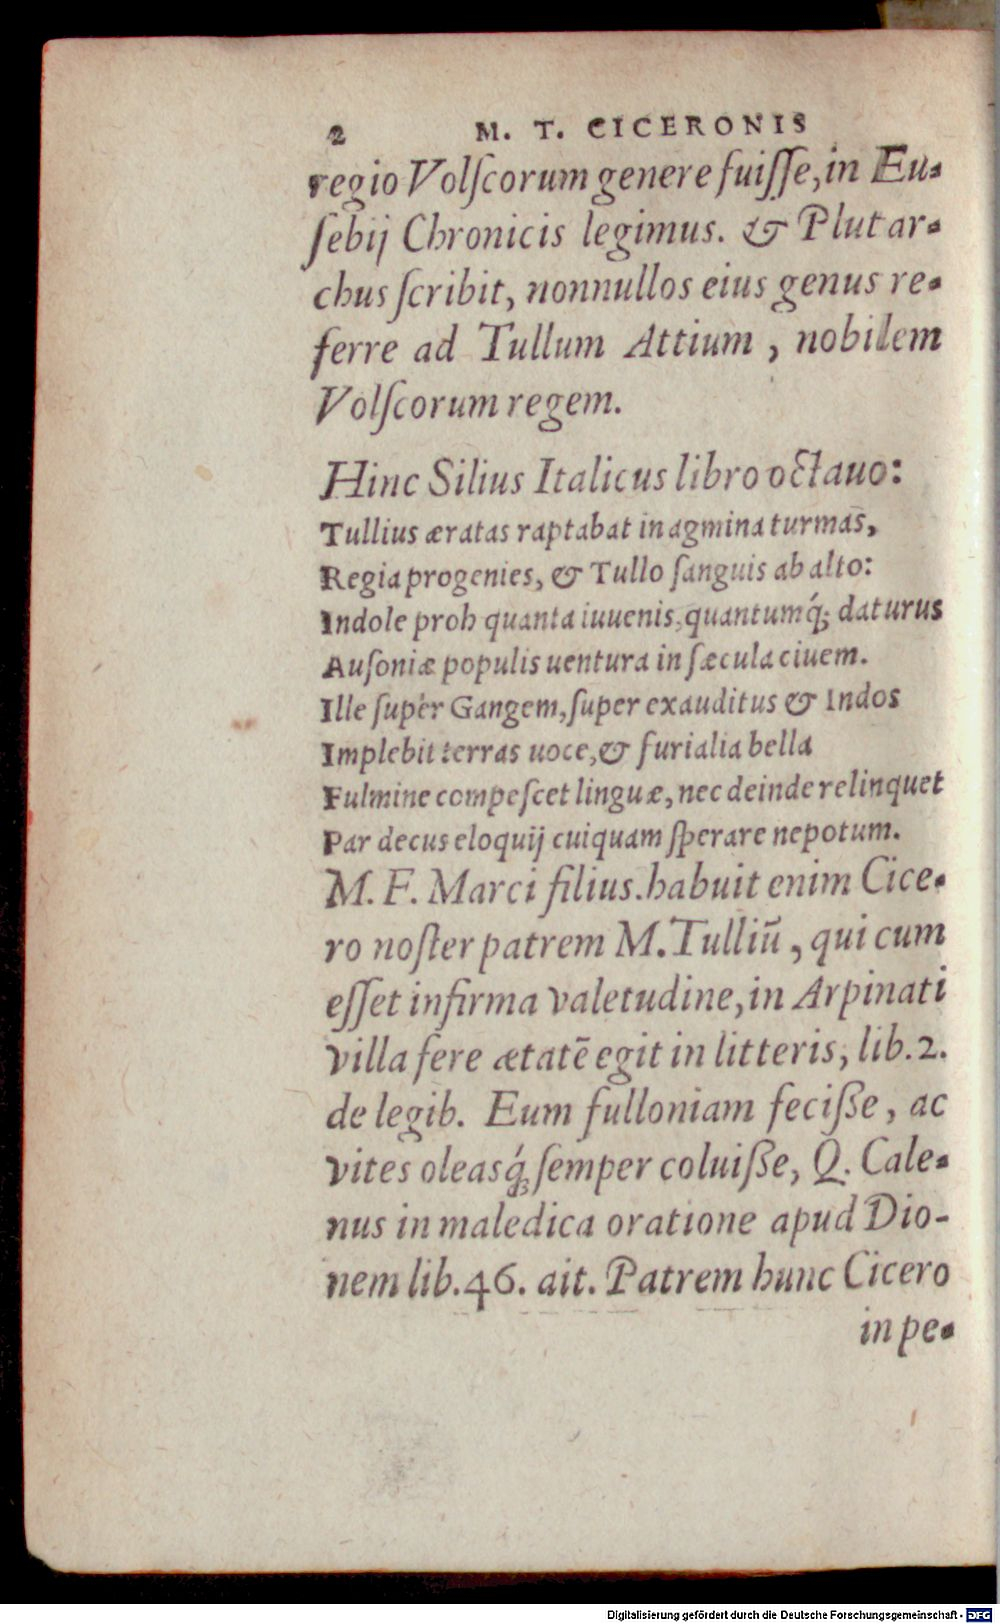 2 M. T. CICERONIS
regio Volſcorum genere fuiſſe, in Eu-
ſebij Chronicis legimus. & Plutar-
chus ſcribit, nonnullos eius genus re-
ferre ad Tullum Attium, nobilem
Volſcorum regem.
Hinc Silius Italicus libro octauo:
Tullius æratas raptabat in agmina turmas,
Regia progenies, & Tullo ſanguis ab alto:
Indole proh quanta iuuenis, quantumq́; daturus
Auſoniæ populis uentura in ſæcula ciuem.
Ille ſuper Gangem, ſuper exauditus & Indos
Implebit terras uoce, & furialia bella
Fulmine compeſcet linguæ, nec deinde relinquet
Par decus eloquij cuiquam ſperare nepotum.
M. F. Marci filius. habuit enim Cice-
ro noſter patrem M. Tulliū, qui cum
eſſet infirma valetudine, in Arpinati
villa fere ætatē egit in litteris, lib. 2.
de legib. Eum fulloniam feciße, ac
vites oleasq́; ſemper coluiße, Q. Cale-
nus in maledica oratione apud Dio-
nem lib. 46. ait. Patrem hunc Cicero
in pe-
Digitalisierung gefördert durch die Deutsche Forschungsgemeinschaft - DFG